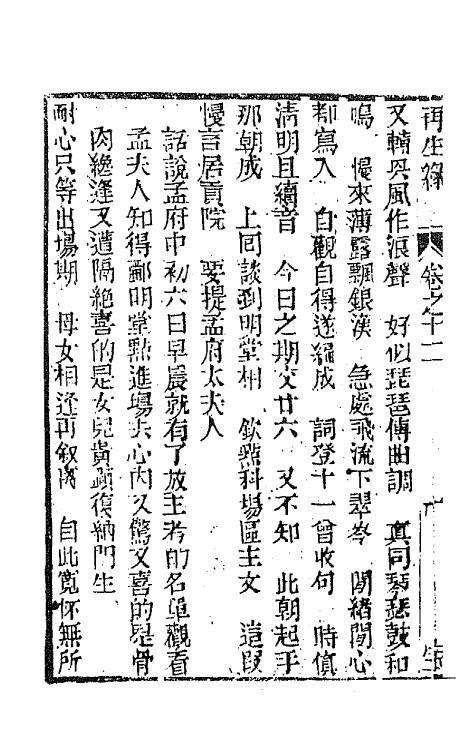 再生緣 卷之十二
又轉與風作浪聲 好似琵琶傳曲調 真同琴瑟鼓和
鳴 慢來薄露飄銀漢 急處飛流下翠岑 閒緒閒心
都寫入 自觀自得遂編成 詞登十一曾收句 時值
清明且續音 今日之期交廿六 又不知 此朝起手
那朝成 上回談到明堂相 欽點科場區主文 這段
慢言居貢院 要提孟府太夫人
話說孟府中初六日早晨就有了放主考的名單觀看
孟夫人知得酈明堂點進場去心内又驚又喜的是骨
肉纔逢又遭隔絶喜的是女兒貴顯復納門生
耐心只等出場期 母女相逢再叙 自此寬怀無所